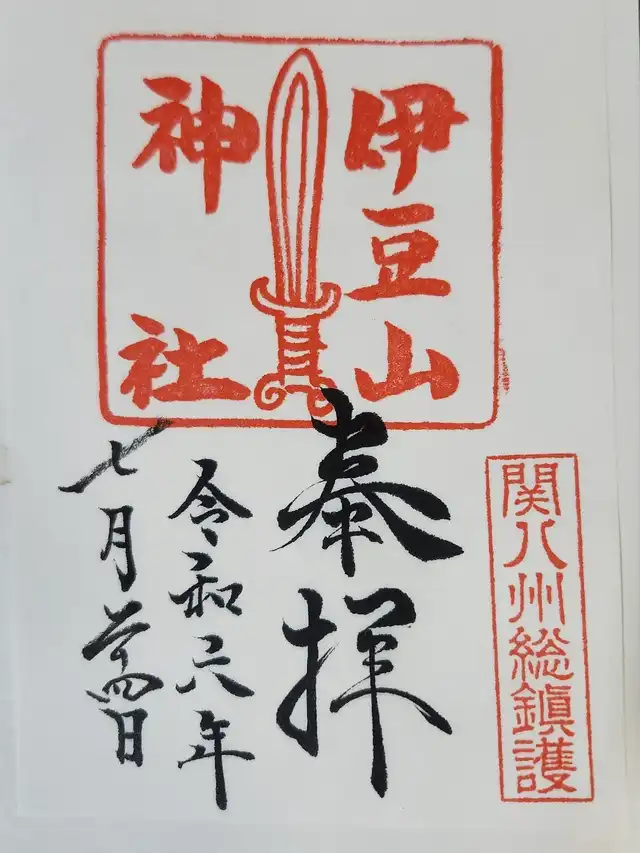 伊豆山
神社
関八州総鎭護
奉拝
令和六年
七月廿四日